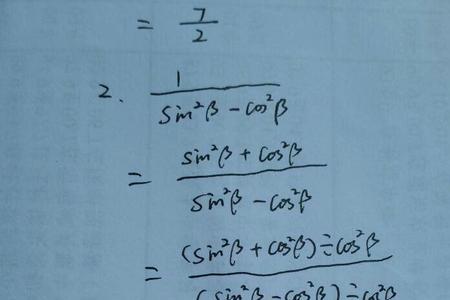 = 7/2
2. 1/(sin²β - cos²β)
= (sin²β + cos²β)/(sin²β - cos²β)
= ((sin²β + cos²β) ÷ cos²β)/((sin²β - cos²β) ÷ cos²β)